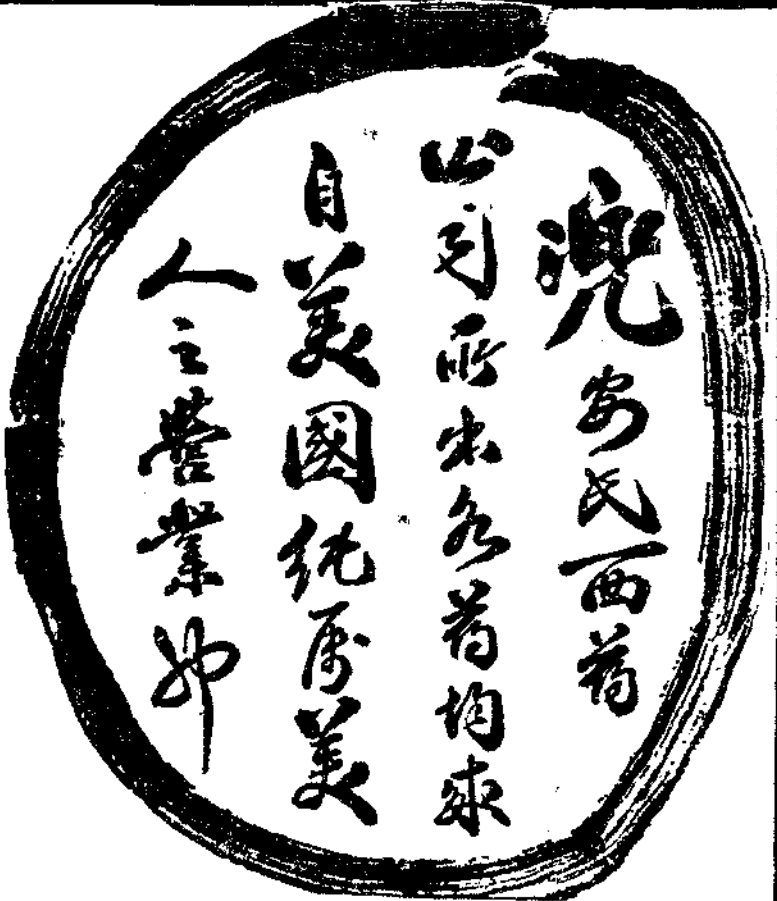 兜安氏西药
公司所出各药均来
自美国纯属美
人之营业也